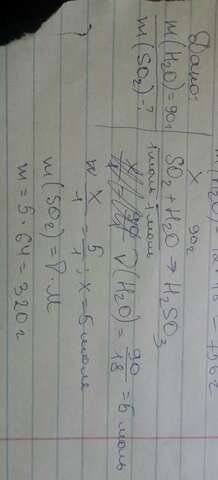 Дано:
m(H₂O)=90г
m(SO₂)-?
x 90г
SO₂+H₂O → H₂SO₃
1моль 1моль
ν(H₂O) = 90/18 = 5 моль
x/1 = 5/1; x = 5 моль
m(SO₂) = ν·M
m = 5·64 = 320 г